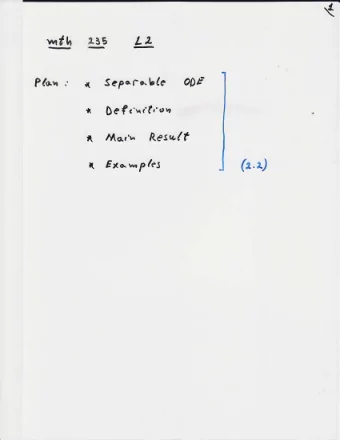 1
mth 235 L2
Plan : * Separable ODE
* Definition
* Main Result
* Examples (2.2)